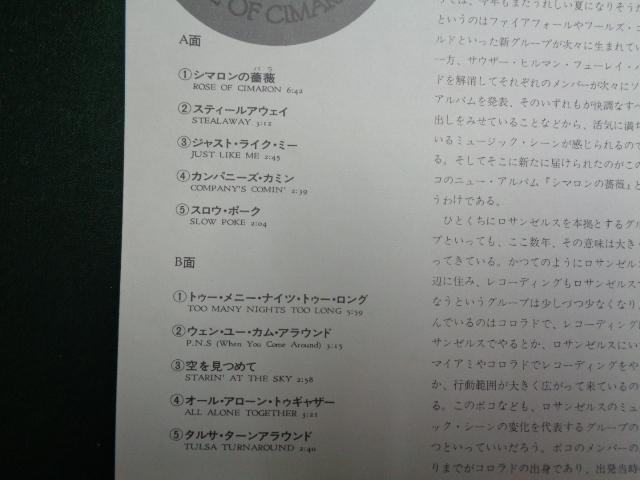 E OF CIMARON
A面
バラ
①シマロンの薔薇
ROSE OF CIMARON 6:42
②スティールアウェイ
STEALAWAY 3:12
③ジャスト・ライク・ミー
JUST LIKE ME 2:45
④カンパニーズ・カミン
COMPANY'S COMIN' 2:39
⑤スロウ・ポーク
SLOW POKE 2:04
B面
①トゥー・メニー・ナイツ・トゥー・ロング
TOO MANY NIGHTS TOO LONG 5:59
②ウェン・ユー・カム・アラウンド
P.N.S (When You Come Around) 3:15
③空を見つめて
STARIN' AT THE SKY 2:58
④オール・アローン・トゥギャザー
ALL ALONE TOGETHER 3:21
⑤タルサ・ターンアラウンド
TULSA TURNAROUND 2:40
では、今年もまたうれしい夏になりそうだ
というのはファイアフォールやフールズ・ゴ
ルドといった新グループが次々に生まれてい
一方、サウザー・ヒルマン・フューレイ・バ
ドを解消してそれぞれのメンバーが次々にソ
アルバムを発表、そのいずれもが快調なすべ
出しをみせていることなどから、活気に満ち
いるミュージック・シーンが感じられるので
る。そしてそこに新たに届けられたのがこの
コのニュー・アルバム『シマロンの薔薇』と
うわけである。
ひとくちにロサンゼルスを本拠とするグル
プといっても、ここ数年、その意味は大きく
ってきている。かつてのようにロサンゼルス
辺に住み、レコーディングもロサンゼルスで
なうというグループは少しづつ少なくなり、
んでいるのはコロラドで、レコーディングに
サンゼルスでやるとか、ロサンゼルスにい
マイアミやコロラドでレコーディングをや
か、行動範囲が大きく広がって来ているの
る。このポコなども、ロサンゼルスのミュ
ック・シーンの変化を代表するグループの
つといっていいだろう。ポコのメンバーの
りまでがコロラドの出身であり、出発当時